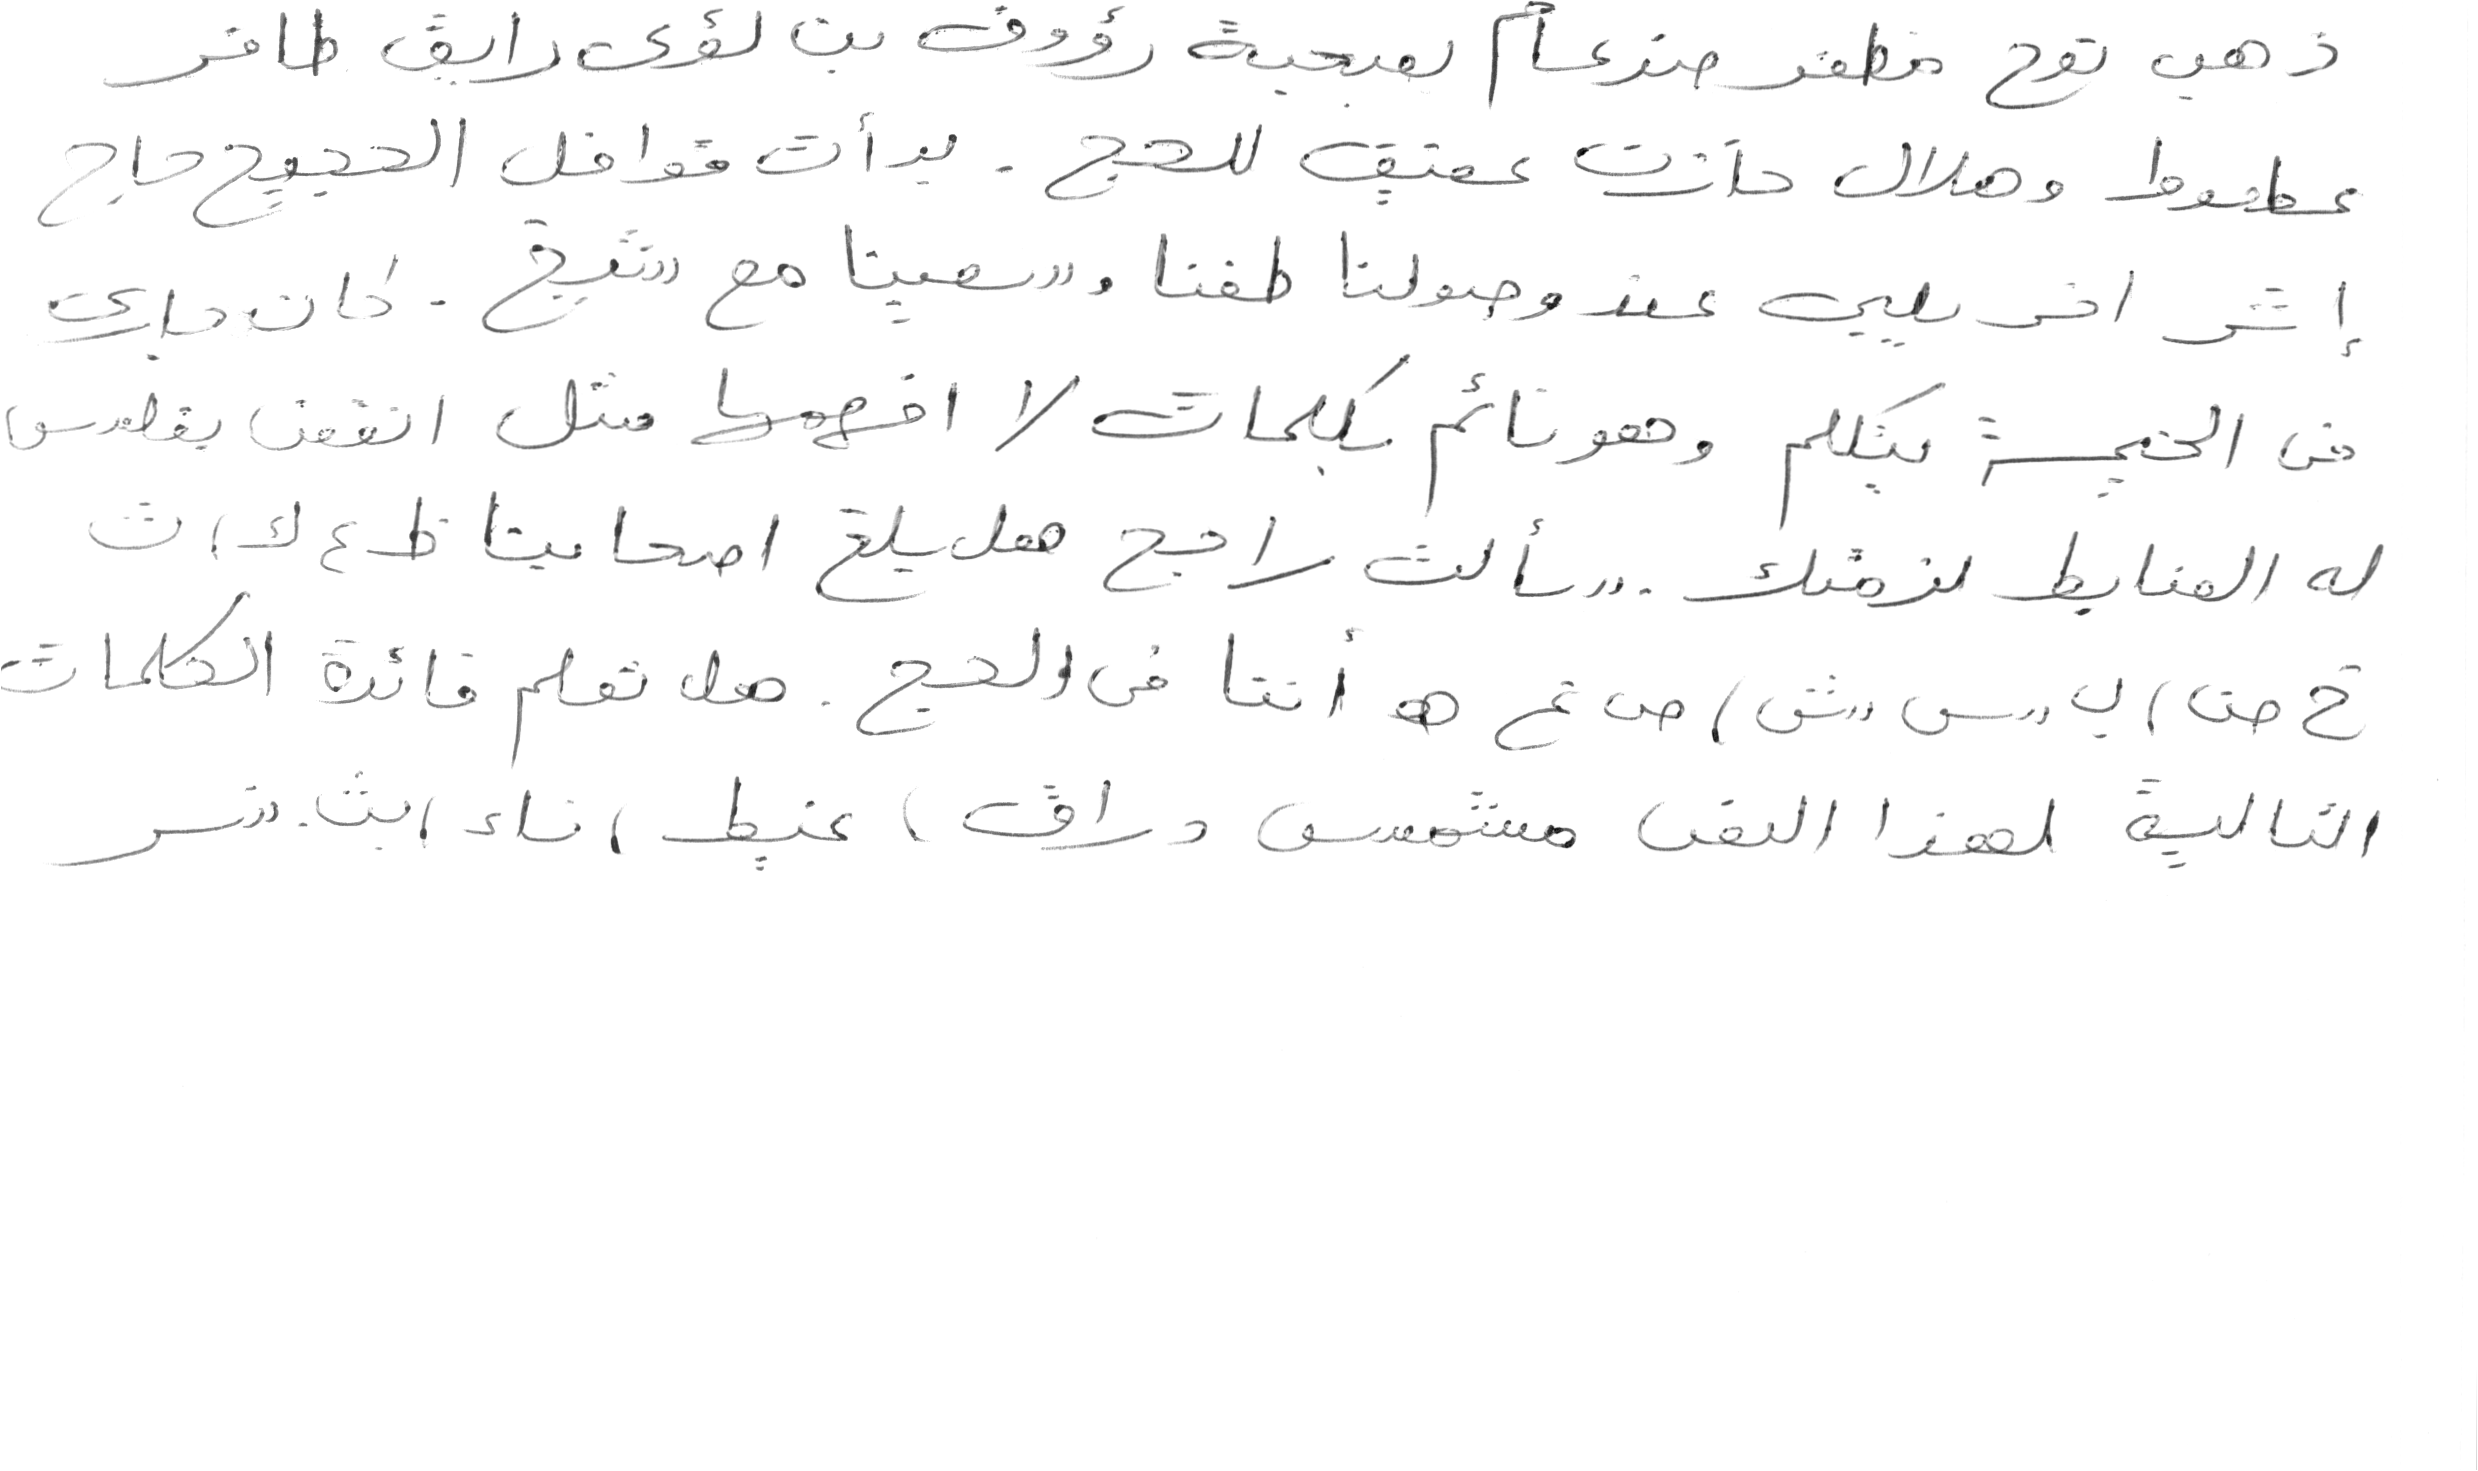 ذهب نوح مظفر ضرغام بصحبة رؤوف بن لؤى رايق ظافر
عطعوط وهلال حازت عفيف للحج . بدأت قوافل الحجيج حاج
إثر اخر يلبي عند وصولنا طفنا وسعينا مع شيخ . كان جارى
فى الخيمة يتكلم وهو نائم بكلمات لا افهمها مثل انقض بغطس
له الضابط لزمتك . سألت راجح هل بلغ اصحابنا ظ ع ك ، ث
خ ض ، ب س ش ، ص غ ه أننا فى الحج . هل تعلم فائدة الكلمات
التالية لهذا النص مشمس دراق ، غيط ، ناء ، بث . سر